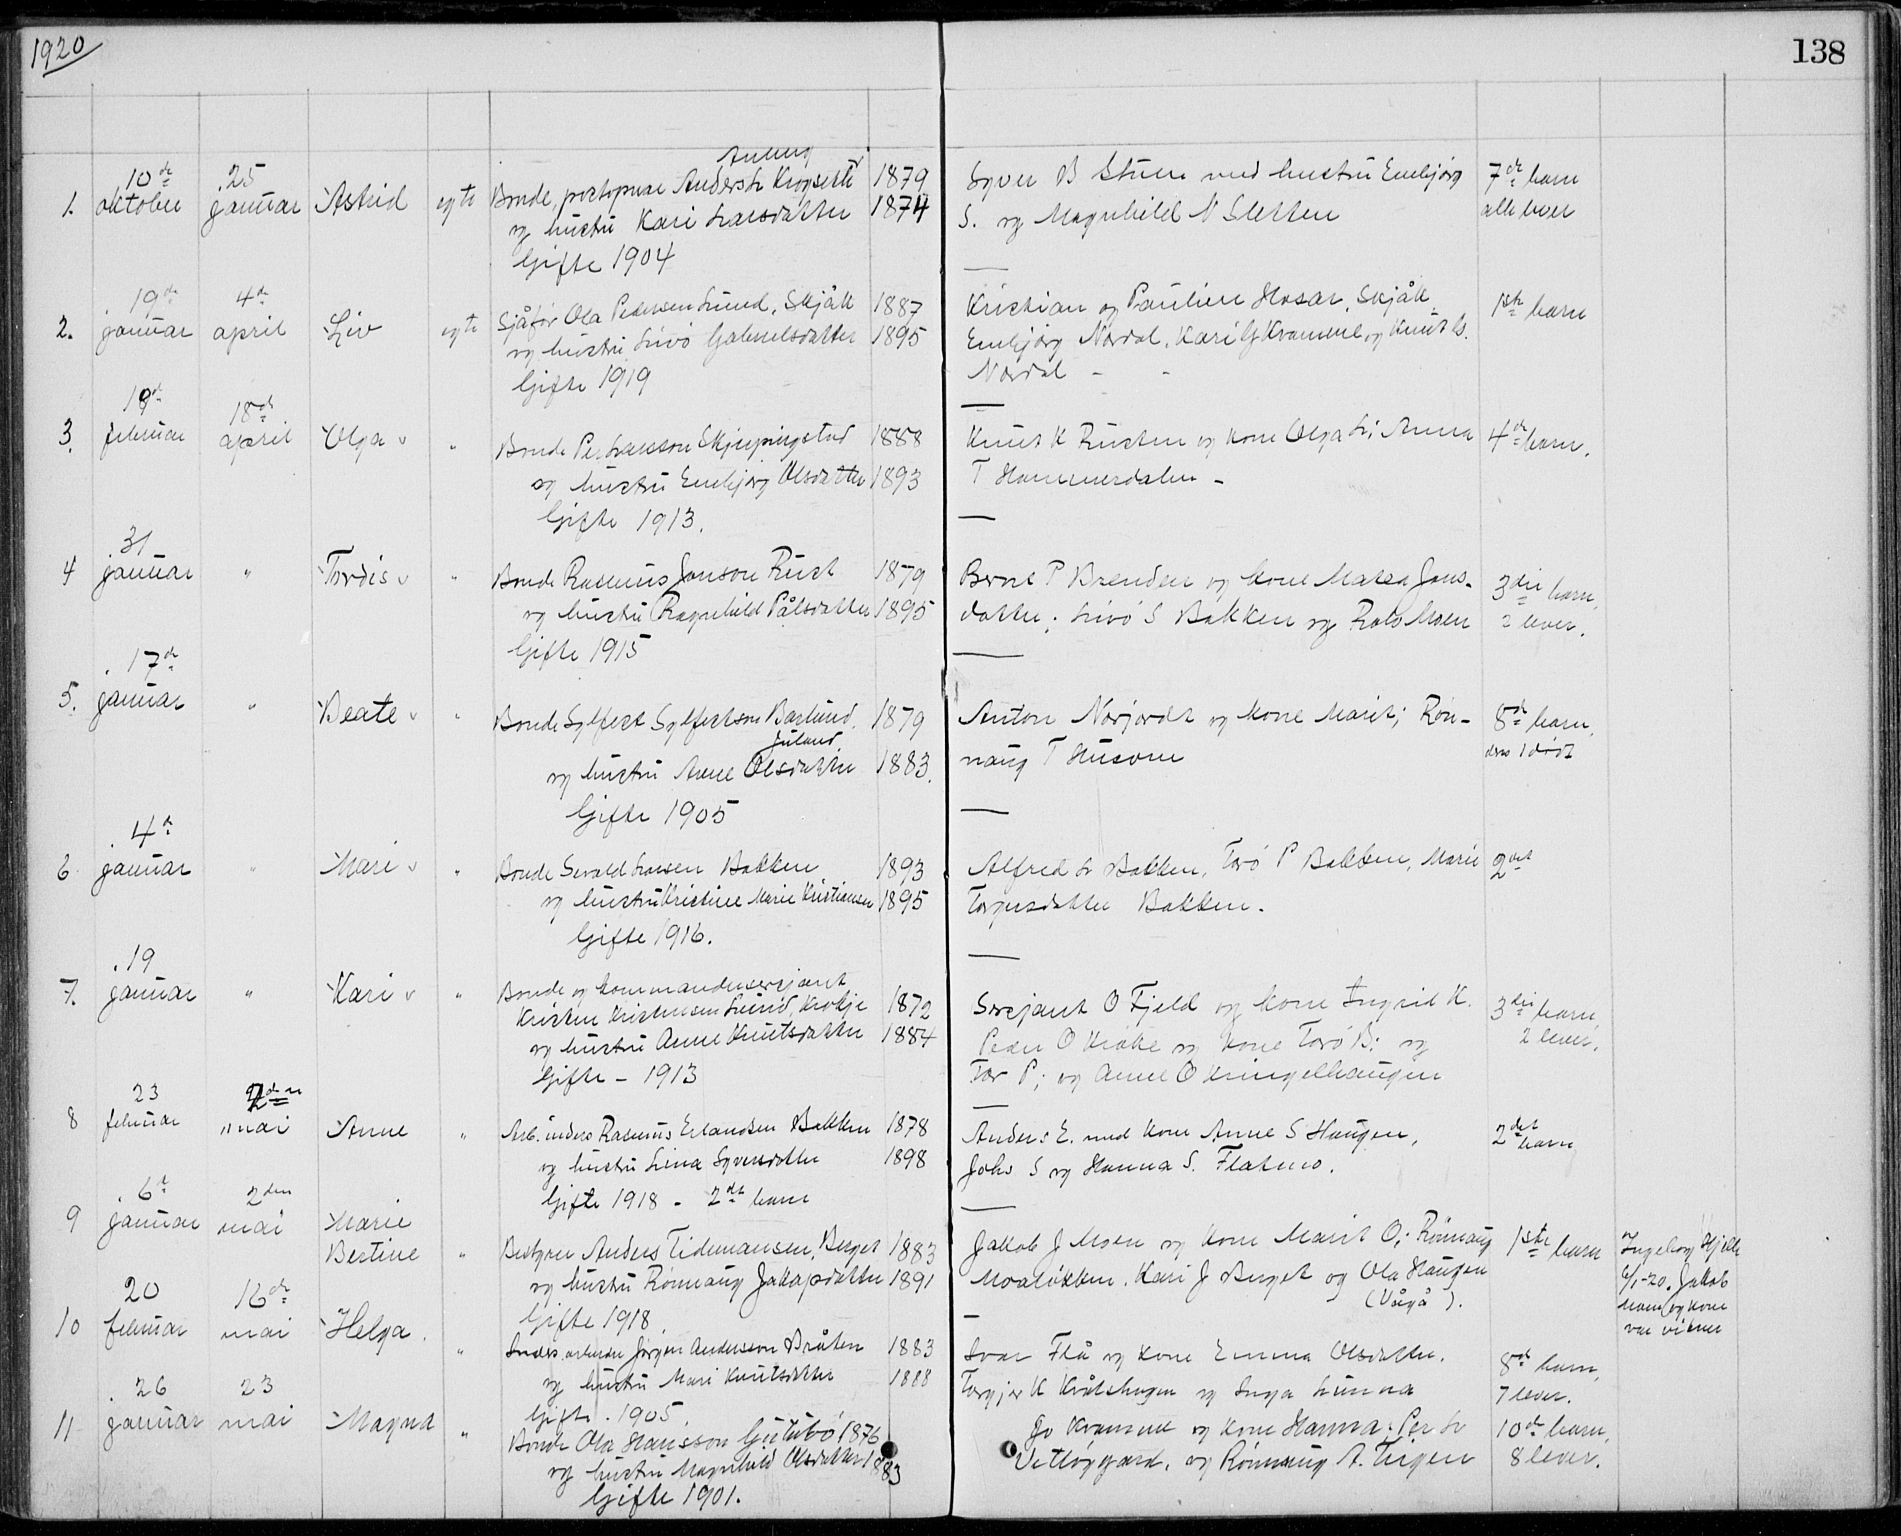 1920
138
1. 10de oktober 25 januar Astrid egte Bonde, postopnar Anders Krogsette 1879 Syver B Stuen med hustru Embjørg 7de barn
og hustru Kari Larsdatter 1874 S. og Magnhild N Sletten alle lever
Gifte 1904
2. 19de januar 4de april Liv egte Sjåfør Ola Pedersen Lund, Skjåk 1887 Kristian og Pauline Hosar, Skjåk 1ste barn
og hustru Livö Gabrielsdatter 1895 Embjørg Nordal, Kari G Kvamme og Knut G.
Gifte 1919 Nordal
3. februar 18de april Olga Bonde Per Larsson Skjepingstad 1888 Knut K Rusten og kone Olga L; Anna 4de barn.
og hustru Embjørg Olsdatter 1893 T Hammerdalen
Gifte 1913.
4 31 januar " Tordis " Bonde Rasmus Janson Rust 1879 Bernt P Brenden og kone Matea Jans- 3die barn,
og hustru Ragnhild Pålsdatter 1895 datter; Livö S Bakken og Moen 2 lever.
Gifte 1915
5. 17de januar " Beate " Bonde Sylfest Sylfestson 1879 Anton Norjordt og kone Marit; Røn- 8de barn,
og hustru Anne Olsdatter 1883. naug T Husom 1 dødt
Gifte 1905
6 4de januar " Mari " Bonde Larsen Bakken 1893 Alfred L Bakken, Torö P Bakken, Marie 2det
og hustru Kristine Marie Kristiansen 1895 Torgersdatter Bakken.
Gifte 1916.
7. 19 januar " Kari " Bonde og kommandersersjant
Kristen Kristensen Lund, 1872 Sersjant O Fjeld og kone Ingrid K. 3die barn,
og hustru Anne Knutsdatter 1884 Peder O og kone Torö B; og 2 lever.
Gifte - 1913 Tor P; og Anne O Kringelhaugen
8 23 februar 2den mai Anne " Arb. Rasmus Erlandsen Bakken 1878 Anders E. med kone Anne S Haugen, 2det barn
og hustru Lina Syversdatter 1898 Johs S og Hanna S. Flatmo.
Gifte 1918 - 2det barn
9 6te januar 2den mai Marie
Bertine " Bestyrer Anders Tidemansen Berget 1883 Jakob J Moen og kone Marit O; Rønnaug 1ste barn Ingeborg Hjelle
og hustru Rønnaug Jakopsdatter 1891 Moaløkken, Kari J Berget og Ola Haugen 6/1-20. Jakob
Gifte 1918. (Vågå). Moen og kone
var vitner
10 20 februar 16de mai Helga. " Jørgen Anderson Bråten 1883 Ivar Flå og kone Emma Olsdatter. 8de barn,
og hustru Mari Knutsdatter 1888 Torgjer K og Inga Lunna 7 lever.
Gifte. 1905.
11 26 januar 23 mai Magna " Bonde Ola Hansson 1876 Jo Kvamme og kone Hanna; Per L 10de barn,
og hustru Magnhild Olsdatter 1883 Vetløygard, og Rønnaug A. Teigen 8 lever.
Gifte 1901.